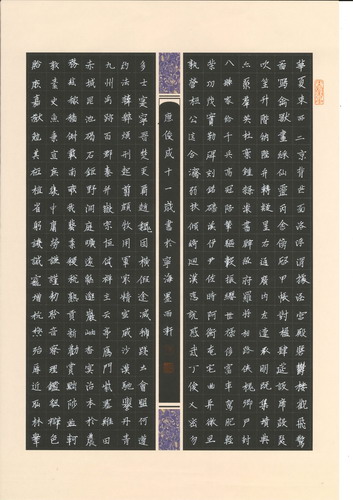 華夏東西二京背邙面洛浮渭據涇宮殿盤鬱樓觀飛驚
圖寫禽獸畫綵仙靈丙舍傍啟甲帳對楹肆筵設席鼓瑟
吹笙升階納陛弁轉疑星右通廣內左達承明既集墳典
亦聚群英杜稾鍾隸漆書壁經府羅將相路俠槐卿戶封
八縣家給千兵高冠陪輦驅轂振纓世祿侈富車駕肥輕
策功茂實勒碑刻銘磻溪伊尹佐時阿衡奄宅曲阜微旦
孰營桓公匡合濟弱扶傾綺迴漢惠說感武丁俊乂密勿
應俊成十一歲書於寧海墨西軒
多士寔寧晉楚更霸趙魏困橫假途滅虢踐土會盟何遵
約法韓弊煩刑起翦頗牧用軍最精宣威沙漠馳譽丹青
九州禹跡百郡秦并嶽宗恒岱禪主云亭雁門紫塞雞田
赤城昆池碣石鉅野洞庭曠遠緜邈巖岫杳冥治本於農
務茲稼穡俶載南畝我藝黍稷稅熟貢新勸賞黜陟孟軻
敦素史魚秉直庶幾中庸勞謙謹敕聆音察理鑑貌辨色
貽厥嘉猷勉其祗植省躬譏誡寵增抗極殆辱近恥林皋